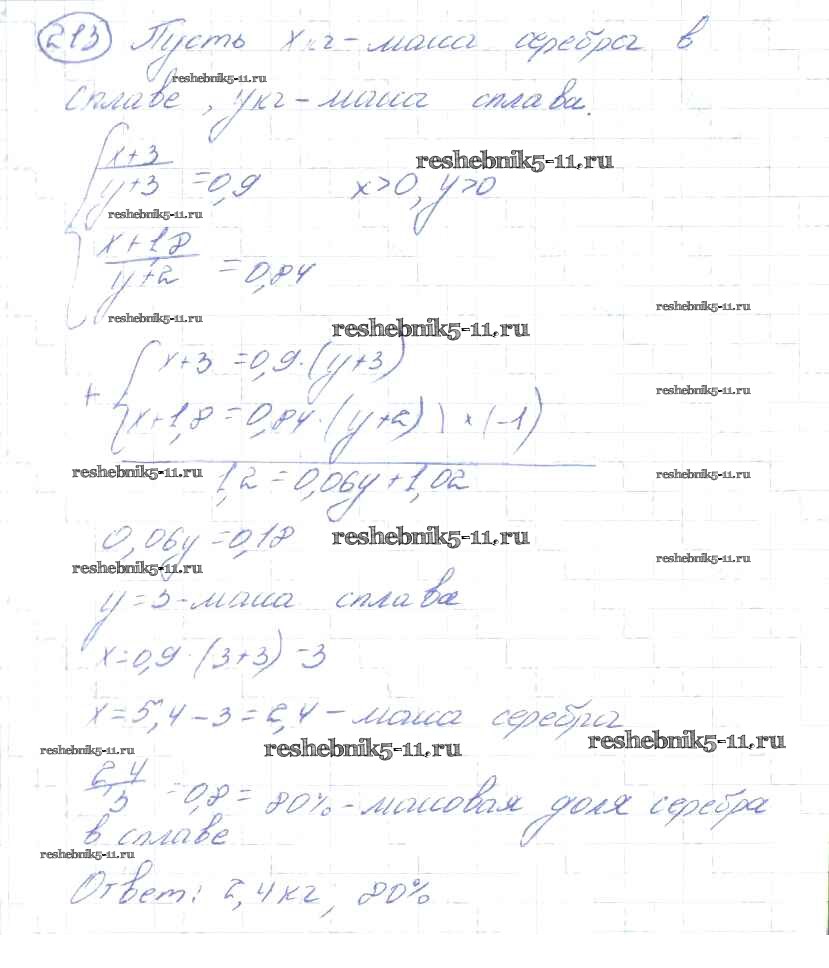 213 Пусть х кг - маса серебра в
reshebnik5-11.ru
сплаве, у кг - маша сплава.
x+3
reshebnik5-11.ru
y+3 = 0,9 x>0, y>0
reshebnik5-11.ru
x+1,8
y+2 = 0,84
reshebnik5-11.ru
reshebnik5-11.ru
reshebnik5-11.ru
x+3 = 0,9·(y+3)
reshebnik5-11.ru
+ x+1,8 = 0,84·(y+2) | × (-1)
reshebnik5-11.ru
reshebnik5-11.ru
1,2 = 0,06y + 1,02
0,06y = 0,18
reshebnik5-11.ru
reshebnik5-11.ru
reshebnik5-11.ru
y = 3 - маса сплава
x = 0,9·(3+3) - 3
x = 5,4 - 3 = 2,4 - маса серебра
reshebnik5-11.ru
reshebnik5-11.ru
reshebnik5-11.ru
2,4
3 = 0,8 = 80% - масовая доля серебра
в сплаве
reshebnik5-11.ru
Ответ: 2,4 кг, 80%